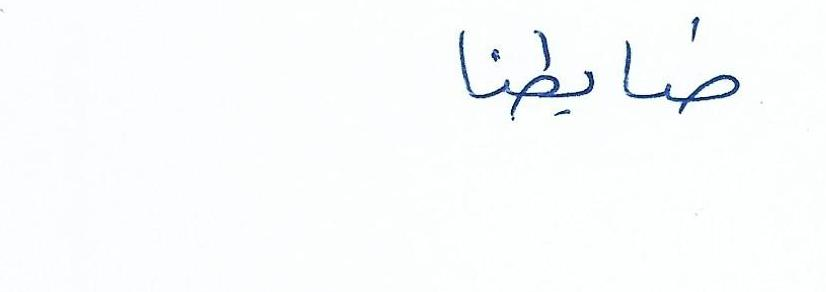 ضابطنا